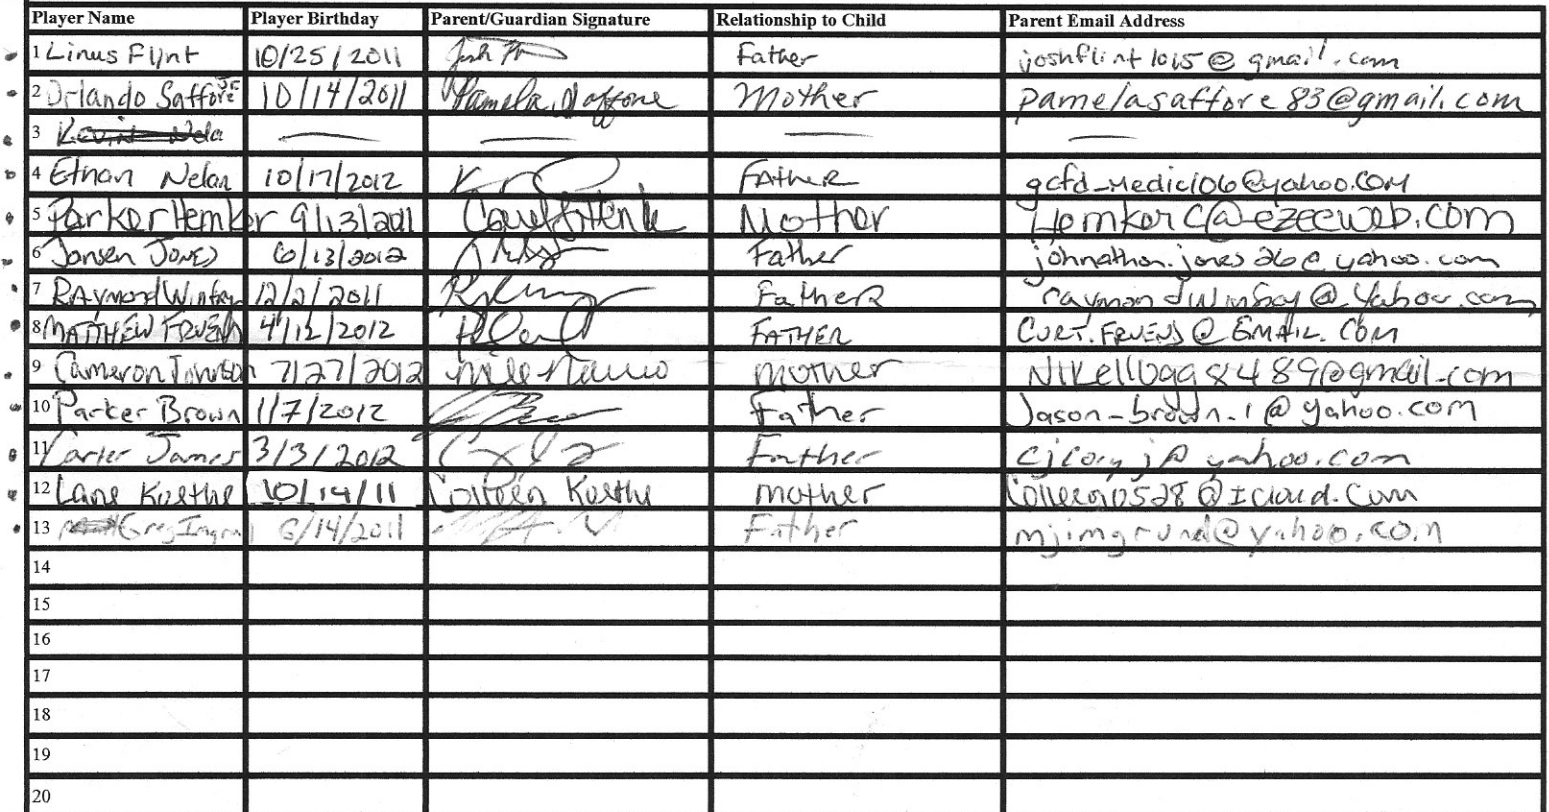 Player Name Player Birthday Parent/Guardian Signature Relationship to Child Parent Email Address
1 Linus Flint 10/25/2011 Josh Father joshflint1015@gmail.com
2 Orlando Saffore Jr 10/14/2011 Pamela Saffore Mother pamelasaffore83@gmail.com
3 — — — —
4 Ethan Nelan 10/17/2012 FATHER gcfd_medic106@yahoo.com
5 Parker Hemker 9/13/2011 Mother Hemkerc@ezeeweb.com
6 Jansen JONES 6/13/2012 Father johnathon.jones26@yahoo.com
7 RAymond 12/2/2011 FatheR
8 MATTHEW 4/12/2012 FATHER
9 Cameron Johnson 7/27/2012 mother Nikellogg8489@gmail.com
10 Parker Brown 1/7/2012 Father Jason_brown_1@yahoo.com
11 Carter James 3/3/2012 Father cjcoryj@yahoo.com
12 Lane Koethe 10/14/11 Colleen Koethe mother Colleen0528@Icloud.com
13 Greg 6/14/2011 Father mjimgrund@yahoo.com
14
15
16
17
18
19
20